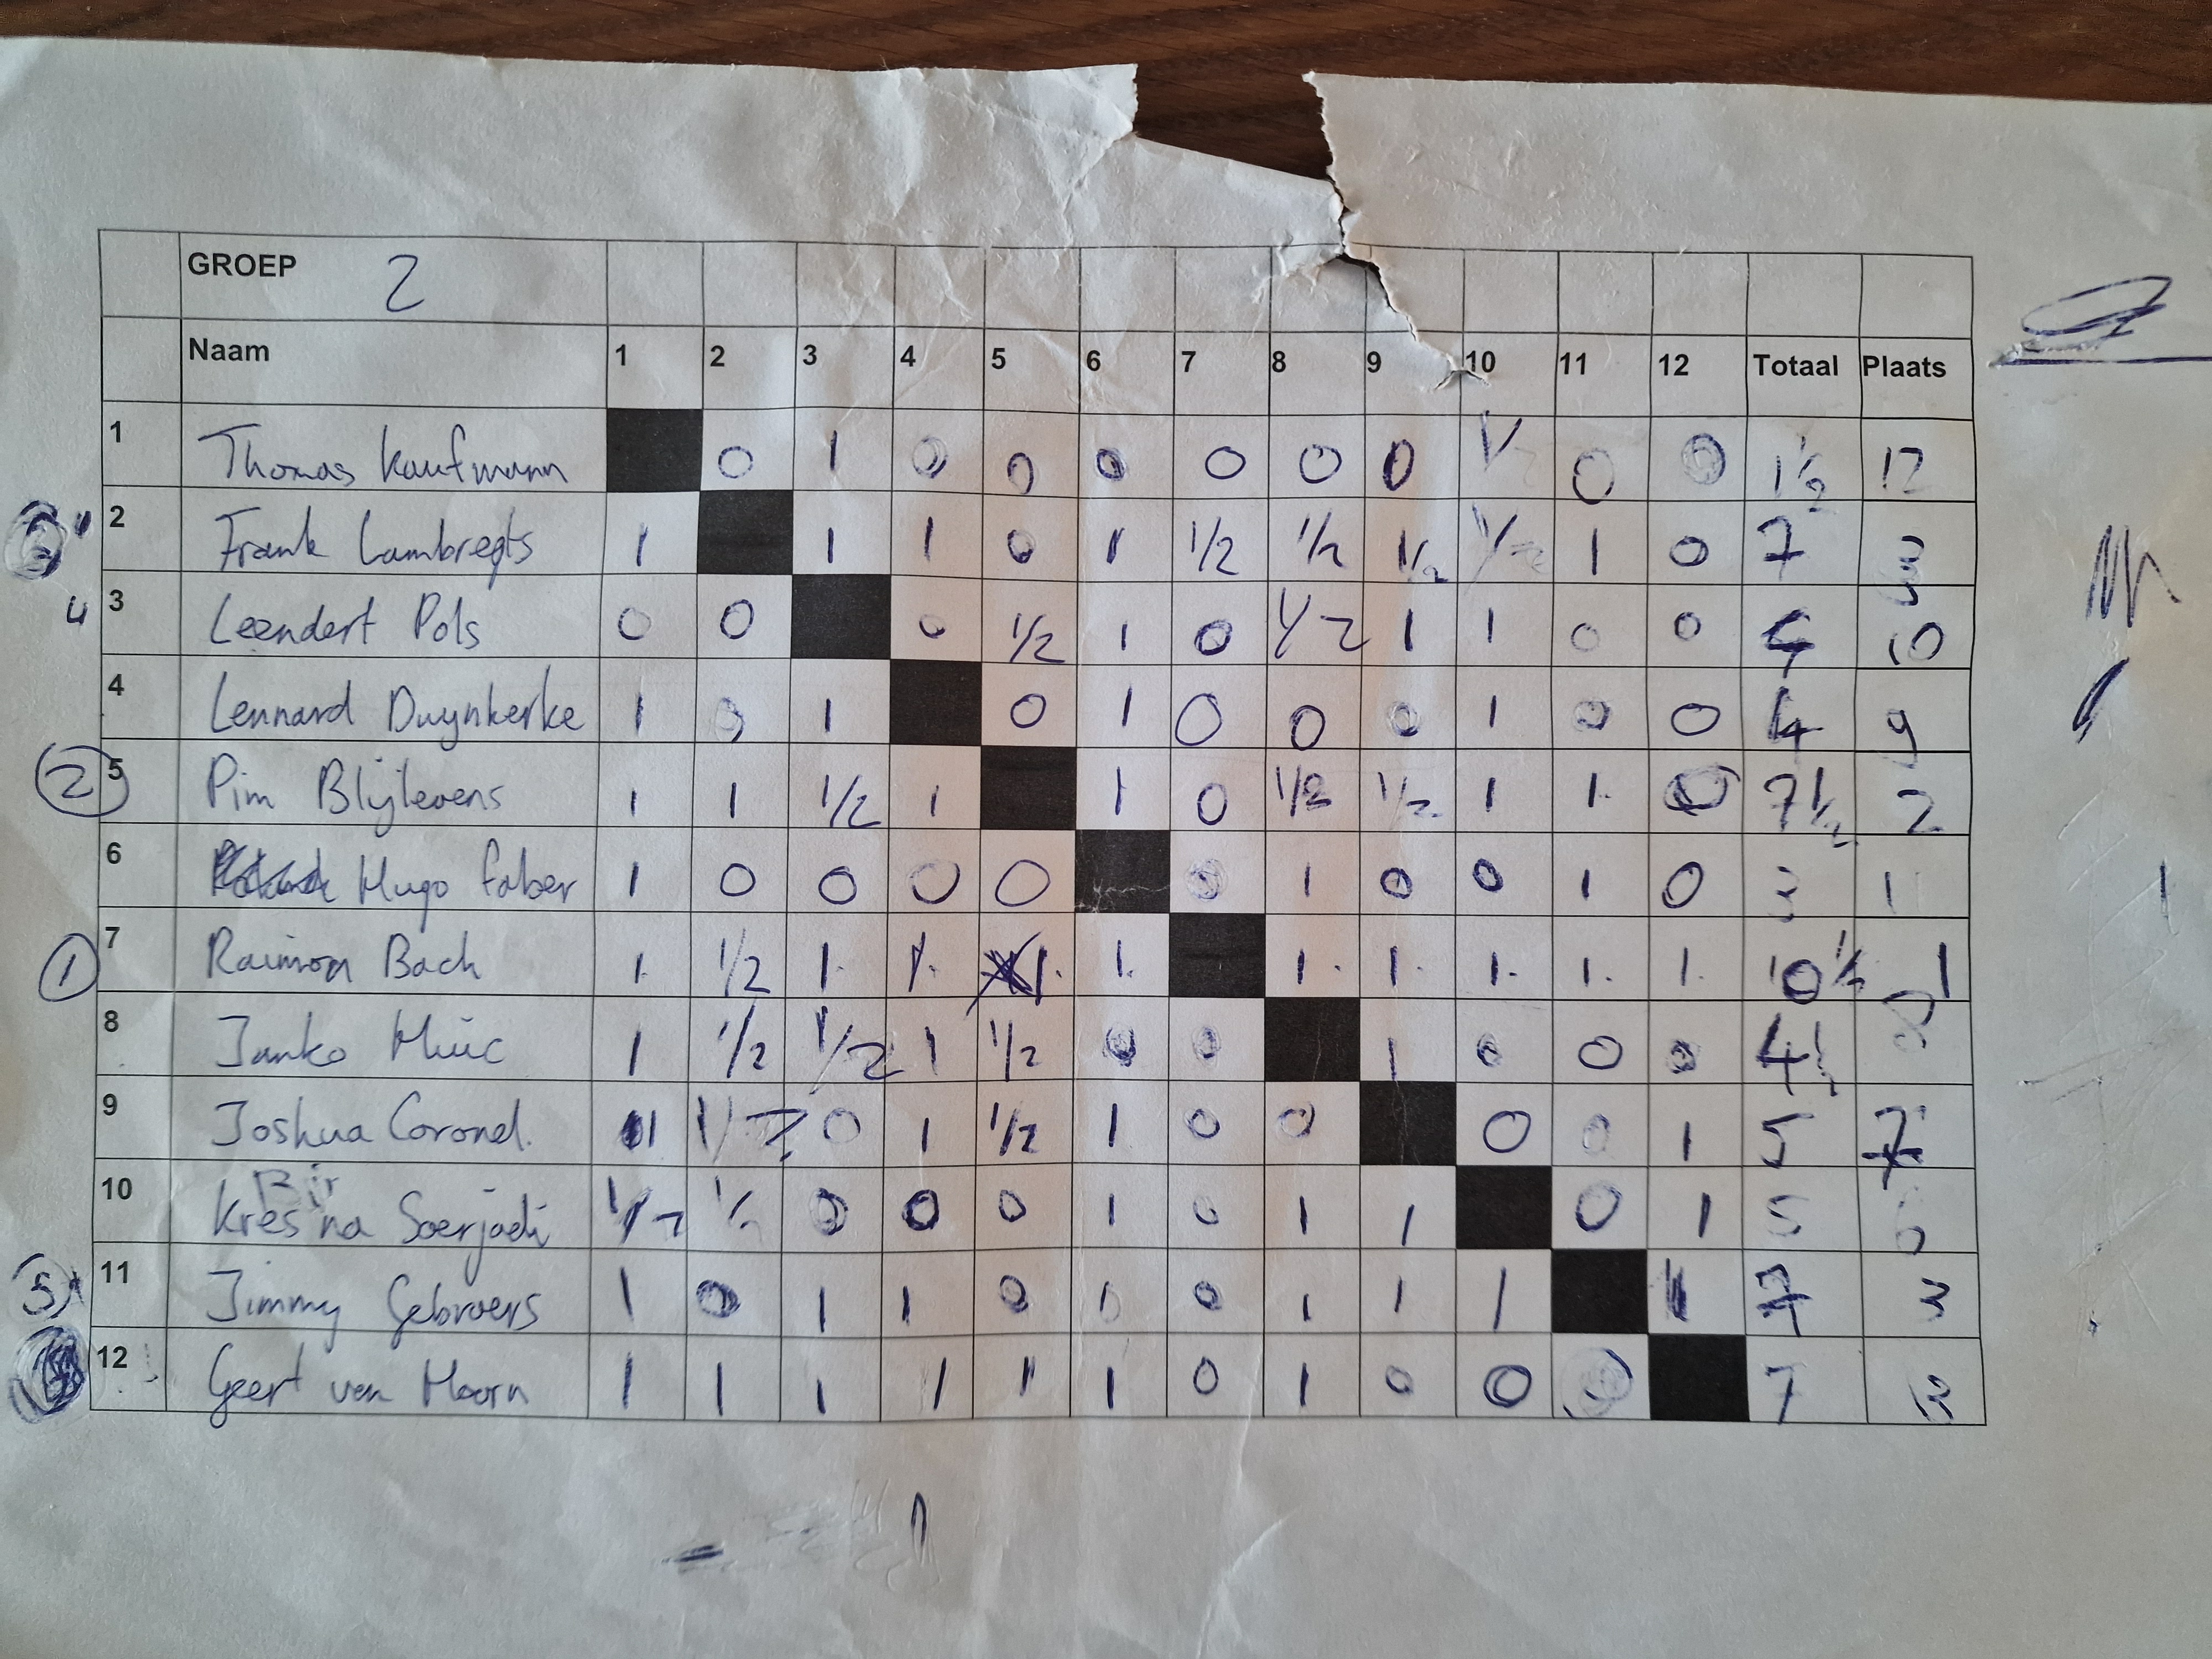 GROEP 2
Naam 1 2 3 4 5 6 7 8 9 10 11 12 Totaal Plaats
1 Thomas Kaufmann 0 1 0 0 0 0 0 0 1/2 0 0 1 1/2 12
2 Frank Lambregts 1 1 1 0 1 1/2 1/2 1/2 1/2 1 0 7 3
4 3 Leendert Pols 0 0 0 1/2 1 0 1/2 1 1 0 0 4 10
4 Lennard Duynkerke 1 0 1 0 1 0 0 0 1 0 0 4 9
2 5 Pim Blijlevens 1 1 1/2 1 1 0 1/2 1/2 1 1 0 7 1/2 2
6 Hugo Faber 1 0 0 0 0 0 1 0 0 1 0 3 11
1 7 Raimon Bach 1 1/2 1 1 1 1 1 1 1 1 1 10 1/2 1
8 Janko 1 1/2 1/2 1 1/2 0 0 1 0 0 0 4 1/2 8
9 Joshua Coronel 1 1/2 0 1 1/2 1 0 0 0 0 1 5 7
Bir
10 Kresna Soerjadi 1/2 1/2 0 0 0 1 0 1 1 0 1 5 6
5 11 Jimmy Gebroers 1 0 1 1 0 1 0 1 1 1 1 7 3
12 Geert van Hoorn 1 1 1 1 1 1 0 1 0 0 0 7 3